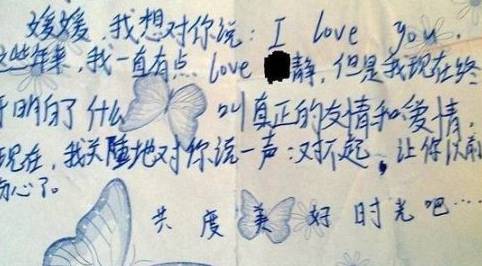 媛媛，我想对你说：I love you.
这些年来，我一直有点 love 静，但是我现在终
于明白了什么叫真正的友情和爱情。
现在，我关隆地对你说一声：对不起，让你以前
伤心了。
共度美好时光吧……